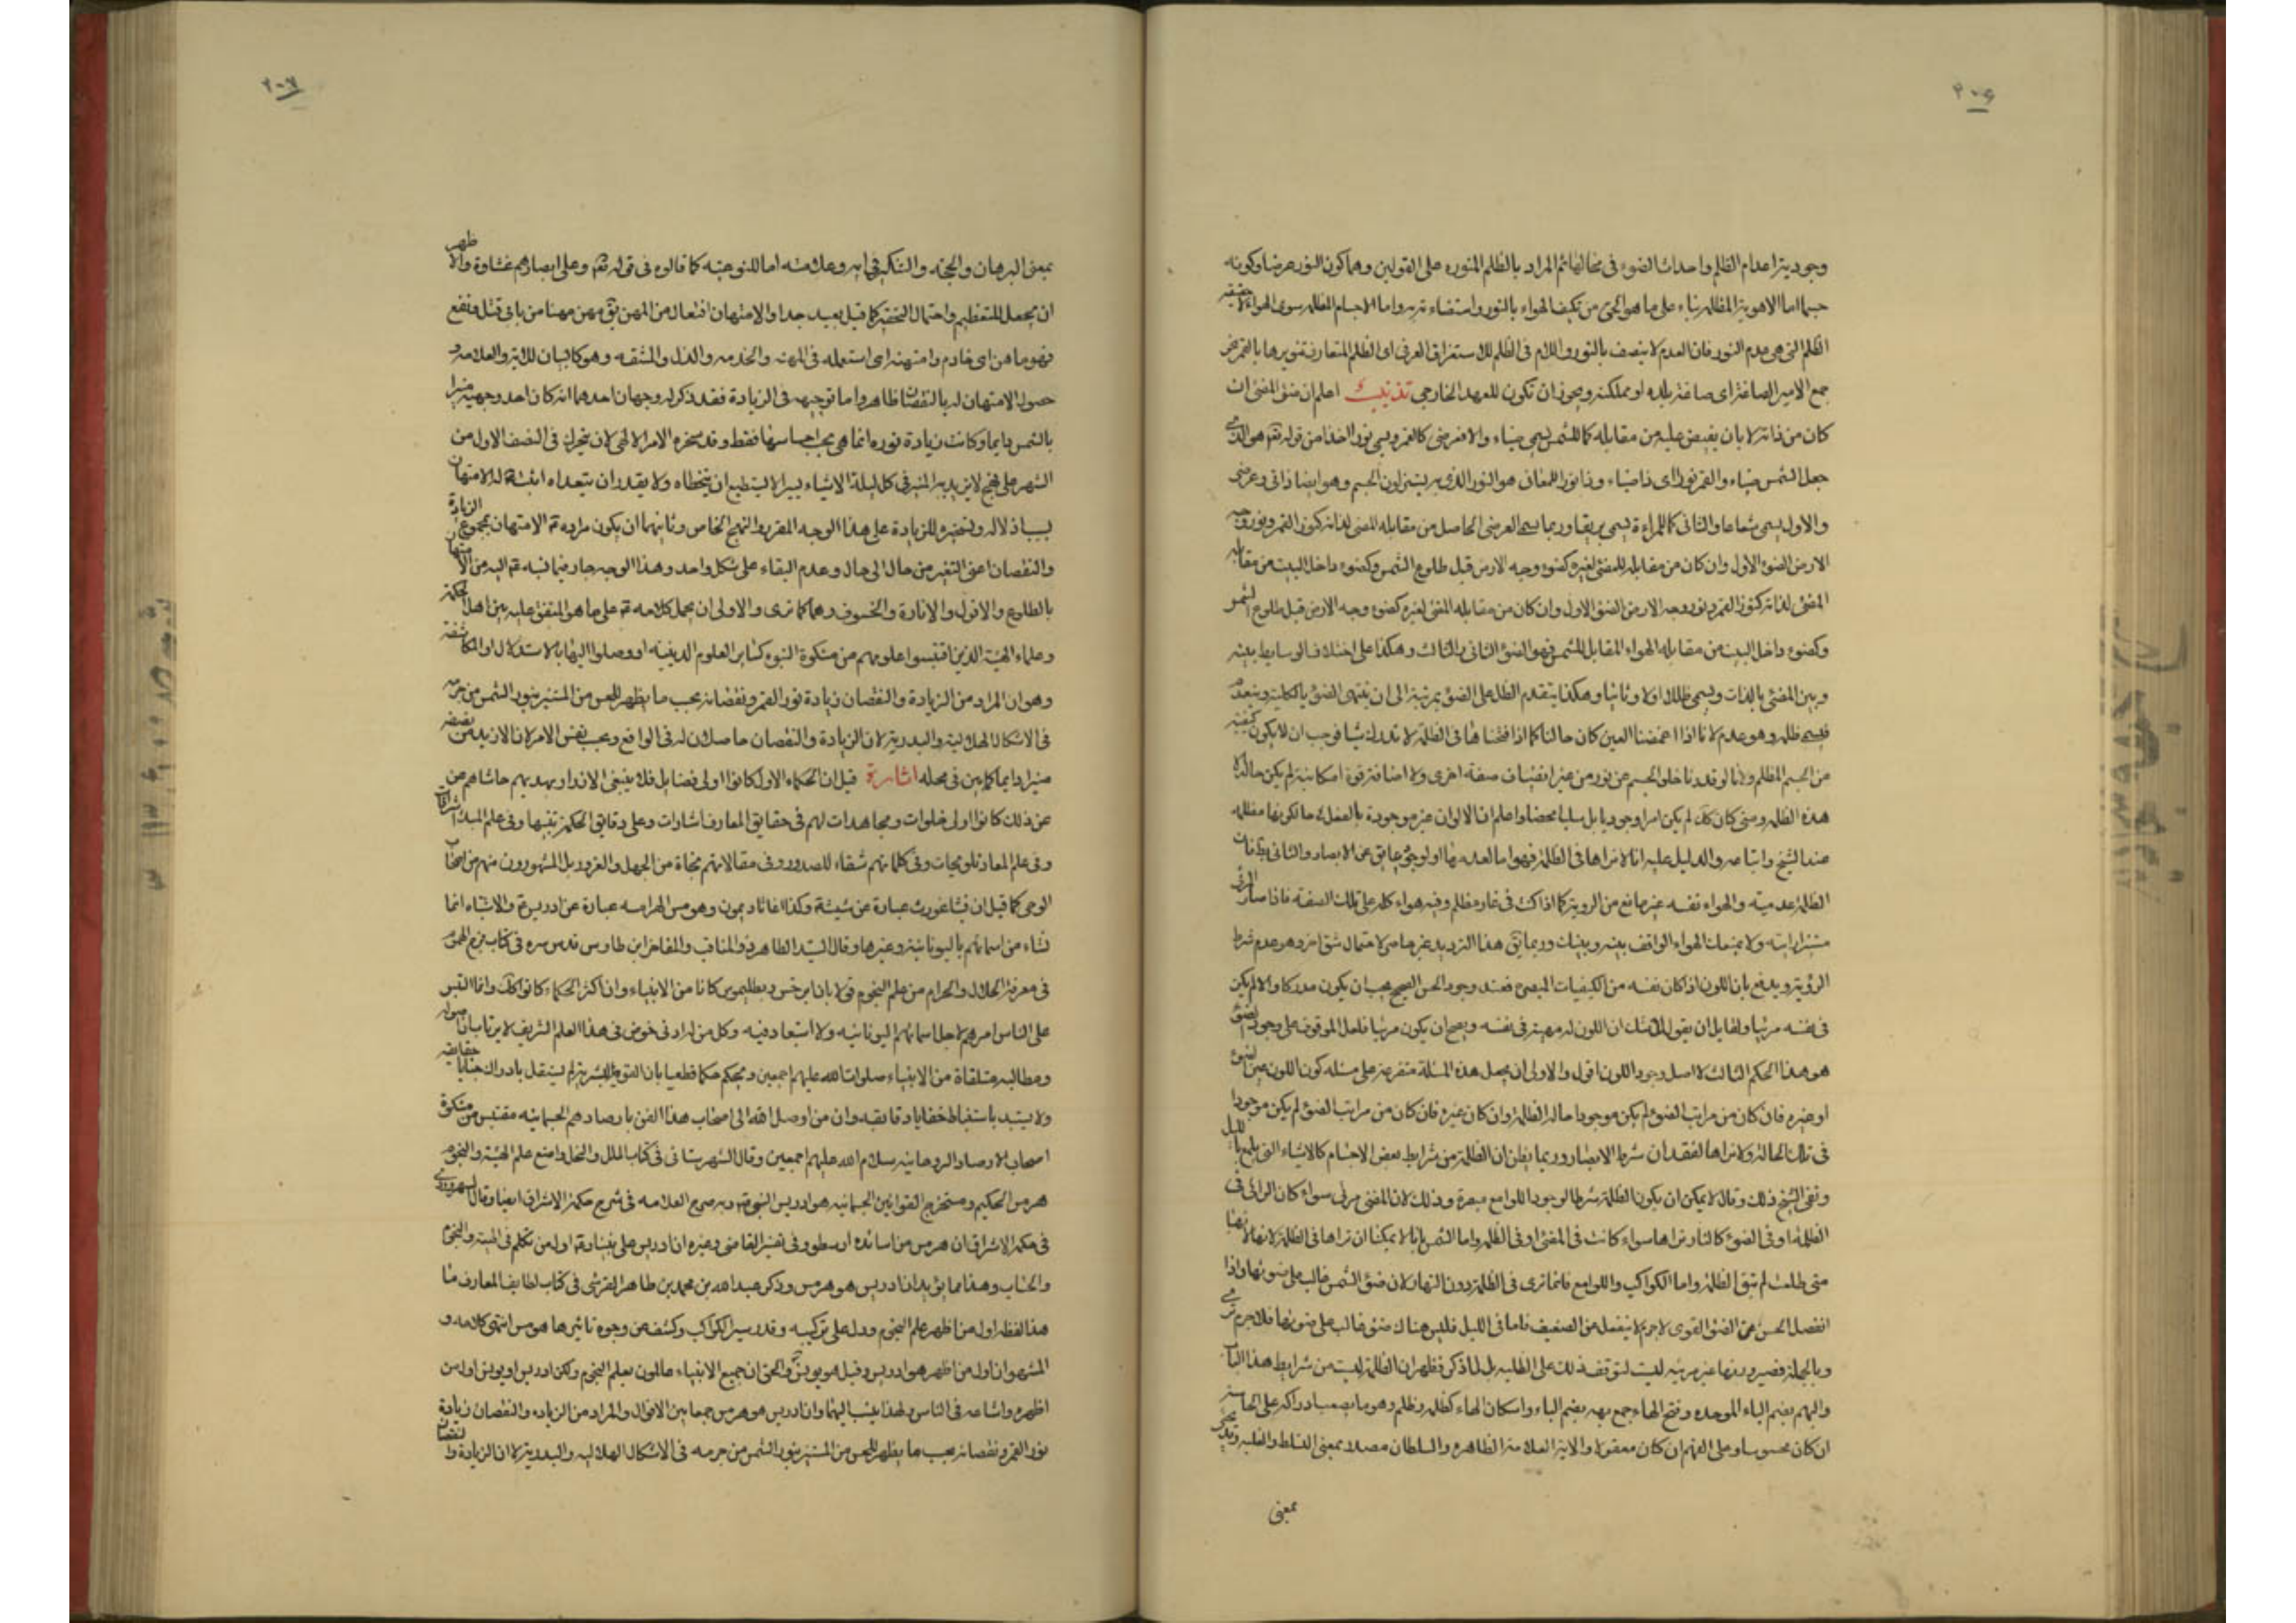 ٢٠٦
وجوديتر اعدام الظلم واحداث الضوء فى محالها ثم المراد بالظلم المنوره على القولين وهما كون النور عرضا وكونه
جسما اما الاهويتر المظلمه بناء على ما هو الحق من تكيف الهواء بالنور واستضاءته به واما الاجسام المظلمه سوى الهواء لا حقيقه
الظلم التى هى عدم النور فان العدم لا يتصف بالنور واللام فى الظلم للاستغراق العرفى اى الظلم المتعارف تنويرها بالقمر نحو
جمع الامير الصاغة اى صاغة بلده او مملكته ويجوز ان تكون للعهد الخارجى تذنيب اعلم ان ضوء المضئ ان
كان من ذاته لا بان يفيض عليه من مقابله كما للشمس يسمى ضياء والا فعرضى كما للقمر ويسمى نورا اخذا من قوله تعم هو الذى
جعل الشمس ضياء والقمر نورا اى ذا ضياء وذا نور اللمعان هو النور الذى به يستر لون الجسم وهو ايضا ذاتى وعرضى
والاول يسمى شعاعا والثانى كما للمراءة يسمى بريقا وربما يسمى العرضى الحاصل من مقابله المضئ لذاته كنور القمر ونور وجه
الارض الضوء الاول وان كان من مقابله المضئ لغيره كضوء وجه الارض قبل طلوع الشمس وكضوء داخل البيت من مقابله
المضئ لذاته كنور القمر ونور وجه الارض الضوء الاول وان كان من مقابله المضئ لغيره كضوء وجه الارض قبل طلوع الشمس
وكضوء داخل البيت من مقابله الهواء المقابل للشمس فهو الضوء الثانى والثالث وهكذا على اختلاف الوسايط بينه
وبين المضئ بالذات ويسمى ظلال اولا وثانيا وهكذا بتقدم الظل على الضوء بمرتبة الى ان ينتهى الضوء بالكلية وينعدم
فيسمى ظلمه وهو عدم لانا اذا اغمضنا العين كان حالنا كما اذا فتحناها فى الظلمة لا ندرك شيئا فوجب ان لا يكون كيفيه
من الجسم المظلم ولانا لو قدرنا خلو الجسم عن نور من غير انضياف صفة اخرى ولا اضافة قوة امكانية لم يكن حاله الا
هذه الظلمه ومتى كان كك لم يكن امرا وجوديا بل سلبا محضا واعلم ان الالوان غير موجودة بالفعل حالكونها مظلمه
عند الشيخ واتباعه والدليل عليه انا لا نراها فى الظلمة فهو اما لعدمها او لوجود عايق عن الابصار والثانى بط لان
الظلمة عدمية والهواء نفسه غير مانع من الروية كما اذا كنت فى غار مظلم وفيه هواء كله على تلك الصفة فاذا صار المرئى
مستنيرا رايته ولا يمنعك الهواء الواقف بينه وبينك وربما يق هذا الترديد غير حاصر لاحتمال شق اخر وهو عدم شرط
الرؤية ويدفع بان اللون اذا كان نفسه من الكيفيات المبصرة فعند وجود الحس الصحيح يجب ان يكون مدركا والا لم يكن
فى نفسه مرئيا ولقايل ان يقول لا شك ان اللون له مهية فى نفسه ويصح ان يكون مرئيا فلعل الموقوف على وجود الضوء
هو هذا الحكم الثالث لا اصل وجود اللون اقول والاولى ان يجعل هذه المسئلة متفرعة على مسئله كون اللون عين الضوء
او غيره فان كان من مراتب الضوء لم يكن موجودا حالة الظلمه وان كان غيره فان كان من مراتب الضوء لم يكن موجودا
فى تلك الحالة ولا نراها لفقدان شرط الابصار وربما يظن ان الظلمة من شرايط بعض الاجسام كالاشياء التى يلمع بالليل
ونفى الشيخ ذلك وقال لا يمكن ان يكون الظلمة شرطا لوجود اللوامع مبصرة وذلك لان المضئ مرئى سواء كان الرائى فى
الظلمة او فى الضوء كالنار نراها سواء كانت فى المضئ او فى الظلمه واما الشمس فانما لا يمكننا ان نراها فى الظلمة لانها
متى طلعت لم تبق الظلمة واما الكواكب واللوامع فانما ترى فى الظلمة دون النهار لان ضوء الشمس غالب على ضوئها واذا
انفعل الحس عن الضوء القوى لا جرم لا ينفعل من الضعيف فاما فى الليل فليس هناك ضوء غالب على ضوئها فلا جرم ترى
وبالجملة فصيرورتها غير مرئيه ليست لتوقف ذلك على الظلمه بل لما ذكر فظهر ان الظلمة ليست من شرايط هذا الباب
والبهم بضم الباء الموحده وفتح الهاء جمع بهمه بضم الباء واسكان الهاء كظلمه وظلم وهو ما يصعب ادراكه على الحاسه
ان كان محسوسا وعلى الفهم ان كان معقولا والايه العلامة الظاهره والسلطان مصدر بمعنى التسلط والغلبه وقد يجئ
بمعنى
٢٠٧
بمعنى البرهان والحجه والتنكير فى ايه وعلامه اما للنوعيه كما قالوه فى قوله تعم وعلى ابصارهم غشاوة والاظهر
ان يجعل للتعظيم واحتمال التحقير كما قيل بعيد جدا والامتهان افتعال من المهن يق مهن مهنا من بابى قتل ونفع
فهو ماهن اى خادم وامتهنه اى استعمله فى المهنه والخدمه والذل والمشقه وهو كالبيان للاية والعلامه و
حصول الامتهان له بالنقصان ظاهر واما توجيهه فى الزيادة فقد ذكر له وجهان احدهما انه كان احد وجهيه منيرا
بالشمس دايما وكانت زيادة نوره انما هى بحسب احساسنا فقط وقد سخره الامر الالهى لان يتحرك فى النصف الاول من
الشهر على نهج لا يزيد به المنير فى كل ليلة الا شيئا يسيرا لا يستطيع ان يتخطاه ولا يقدر ان يتعداه اثبت له الامتهان
بسبب اذلاله وتسخيره للزيادة على هذا الوجه المقرر والنهج الخاص وثانيهما ان يكون مراده ع الامتهان بمجموع الزيادة
والنقصان اعنى التغير من حال الى حال وعدم البقاء على شكل واحد وهذا الوجه جار فيما نسبه ع اليه من الامتهان
بالطلوع والافول والانارة والخسوف وهما كما ترى والاولى ان يحمل كلامه ع على ما هو المتفق عليه بين اهل الحكمه
وعلماء الهيئه الذين اقتبسوا علومهم من مشكوة النبوه كساير العلوم الدينيه او وصلوا اليها بالاستدلال او المكاشفه
وهو ان المراد من الزيادة والنقصان زيادة نور القمر ونقصانه بحسب ما يظهر للحس من المستنير بنور الشمس من جرمه
فى الاشكال الهلالية والبدرية لان الزيادة والنقصان حاصلان له فى الواقع وبحسب نفس الامر لان الازيد من نصفه
منير دايما كما بين فى محله اشارة قيل ان الحكماء الاول كانوا اولى فضايل فلا ينبغى الازدراء بهم حاشاهم من
عن ذلك كانوا اولى خلوات ومجاهدات لهم فى حقايق المعارف اشارات وعلى دقايق الحكمة تنبيهات وفى علم المبدء اشراقات
وفى علم المعاد تلويحات وفى كلماتهم شفاء للصدور وفى مقالاتهم نجاة من الجهل والغرور بل المشهورون منهم من اصحاب
الوحى كما قيل ان فيثاغورث عبارة عن شيث ع وكذا اغاثاديمون وهرمس الهرامسه عبارة عن ادريس ع والاشتباه انما
نشاء من اسمائهم باليونانية وغيرها وقال السيد الطاهر ذو المناقب والمفاخر ابن طاوس قدس سره فى كتاب فرج المهموم
فى معرفة الحلال والحرام من علم النجوم قولا بان ابرخس وبطلميوس كانا من الانبياء وان اكثر الحكماء كانوا كك وانما التبس
على الناس امرهم لاجل اسمائهم اليونانيه ولا استبعاد فيه وكل من له ادنى خوض فى هذا العلم الشريف لا يرتاب ان اصوله
ومطالبه متلقاة من الانبياء صلوات الله عليهم اجمعين ويحكم حكما قطعيا بان القوة البشرية لم يستقل بادراك خبايا حقايقه
ولا يستبد باستنباط خفايا دقايقه وان من اوصل الله الى اصحاب هذا الفن بارصادهم الجسمانيه مقتبس من مشكوة
اصحاب الارصاد الروحانيه سلام الله عليهم اجمعين وقال الشهرستانى فى كتاب الملل والنحل واضع علم الهيئة والنجوم
هرمس الحكيم ومستخرج القوانين الجسمانيه هو ادريس النبى ع وبه صرح العلامه فى شرح حكمة الاشراق ايضا وقال السهروردى
فى حكمة الاشراق ان هرمس من اساتذه ارسطو وفى تفسير القاضى وغيره ان ادريس على نبينا وع اول من تكلم فى الهيئة والنجوم
والحساب وهذا مما يؤيد ان ادريس هو هرمس وذكر عبد الله بن محمد بن طاهر القرشى فى كتاب لطايف المعارف ما
هذا لفظه اول من اظهر علم النجوم ودل على تركيبه وقدر سير الكواكب وكشف عن وجوه تاثيرها هرمس انتهى كلامه و
المشهور ان اول من اظهر هو ادريس وقيل هو يونس والحق ان جميع الانبياء عالمون بعلم النجوم ولكن ادريس او يونس اول من
اظهره واشاعه فى الناس ولهذا ينسب اليهما وان ادريس هو هرمس جمعا بين الاقوال والمراد من الزيادة والنقصان زيادة
نور القمر ونقصانه بحسب ما يظهر للحس من المستنير بنور الشمس من جرمه فى الاشكال الهلاليه والبدرية لا ان الزيادة والنقصان